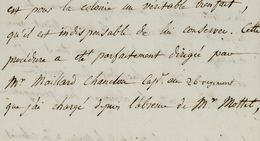 est pour la colonie un véritable bienfait,
qu'il est indispensable de lui conserver. Cette
procédure a été parfaitement dirigée par
Mr Maillard Chancellor Cap. au 26 régiment
que j'ai chargé depuis l'absence de Mr Mottet,